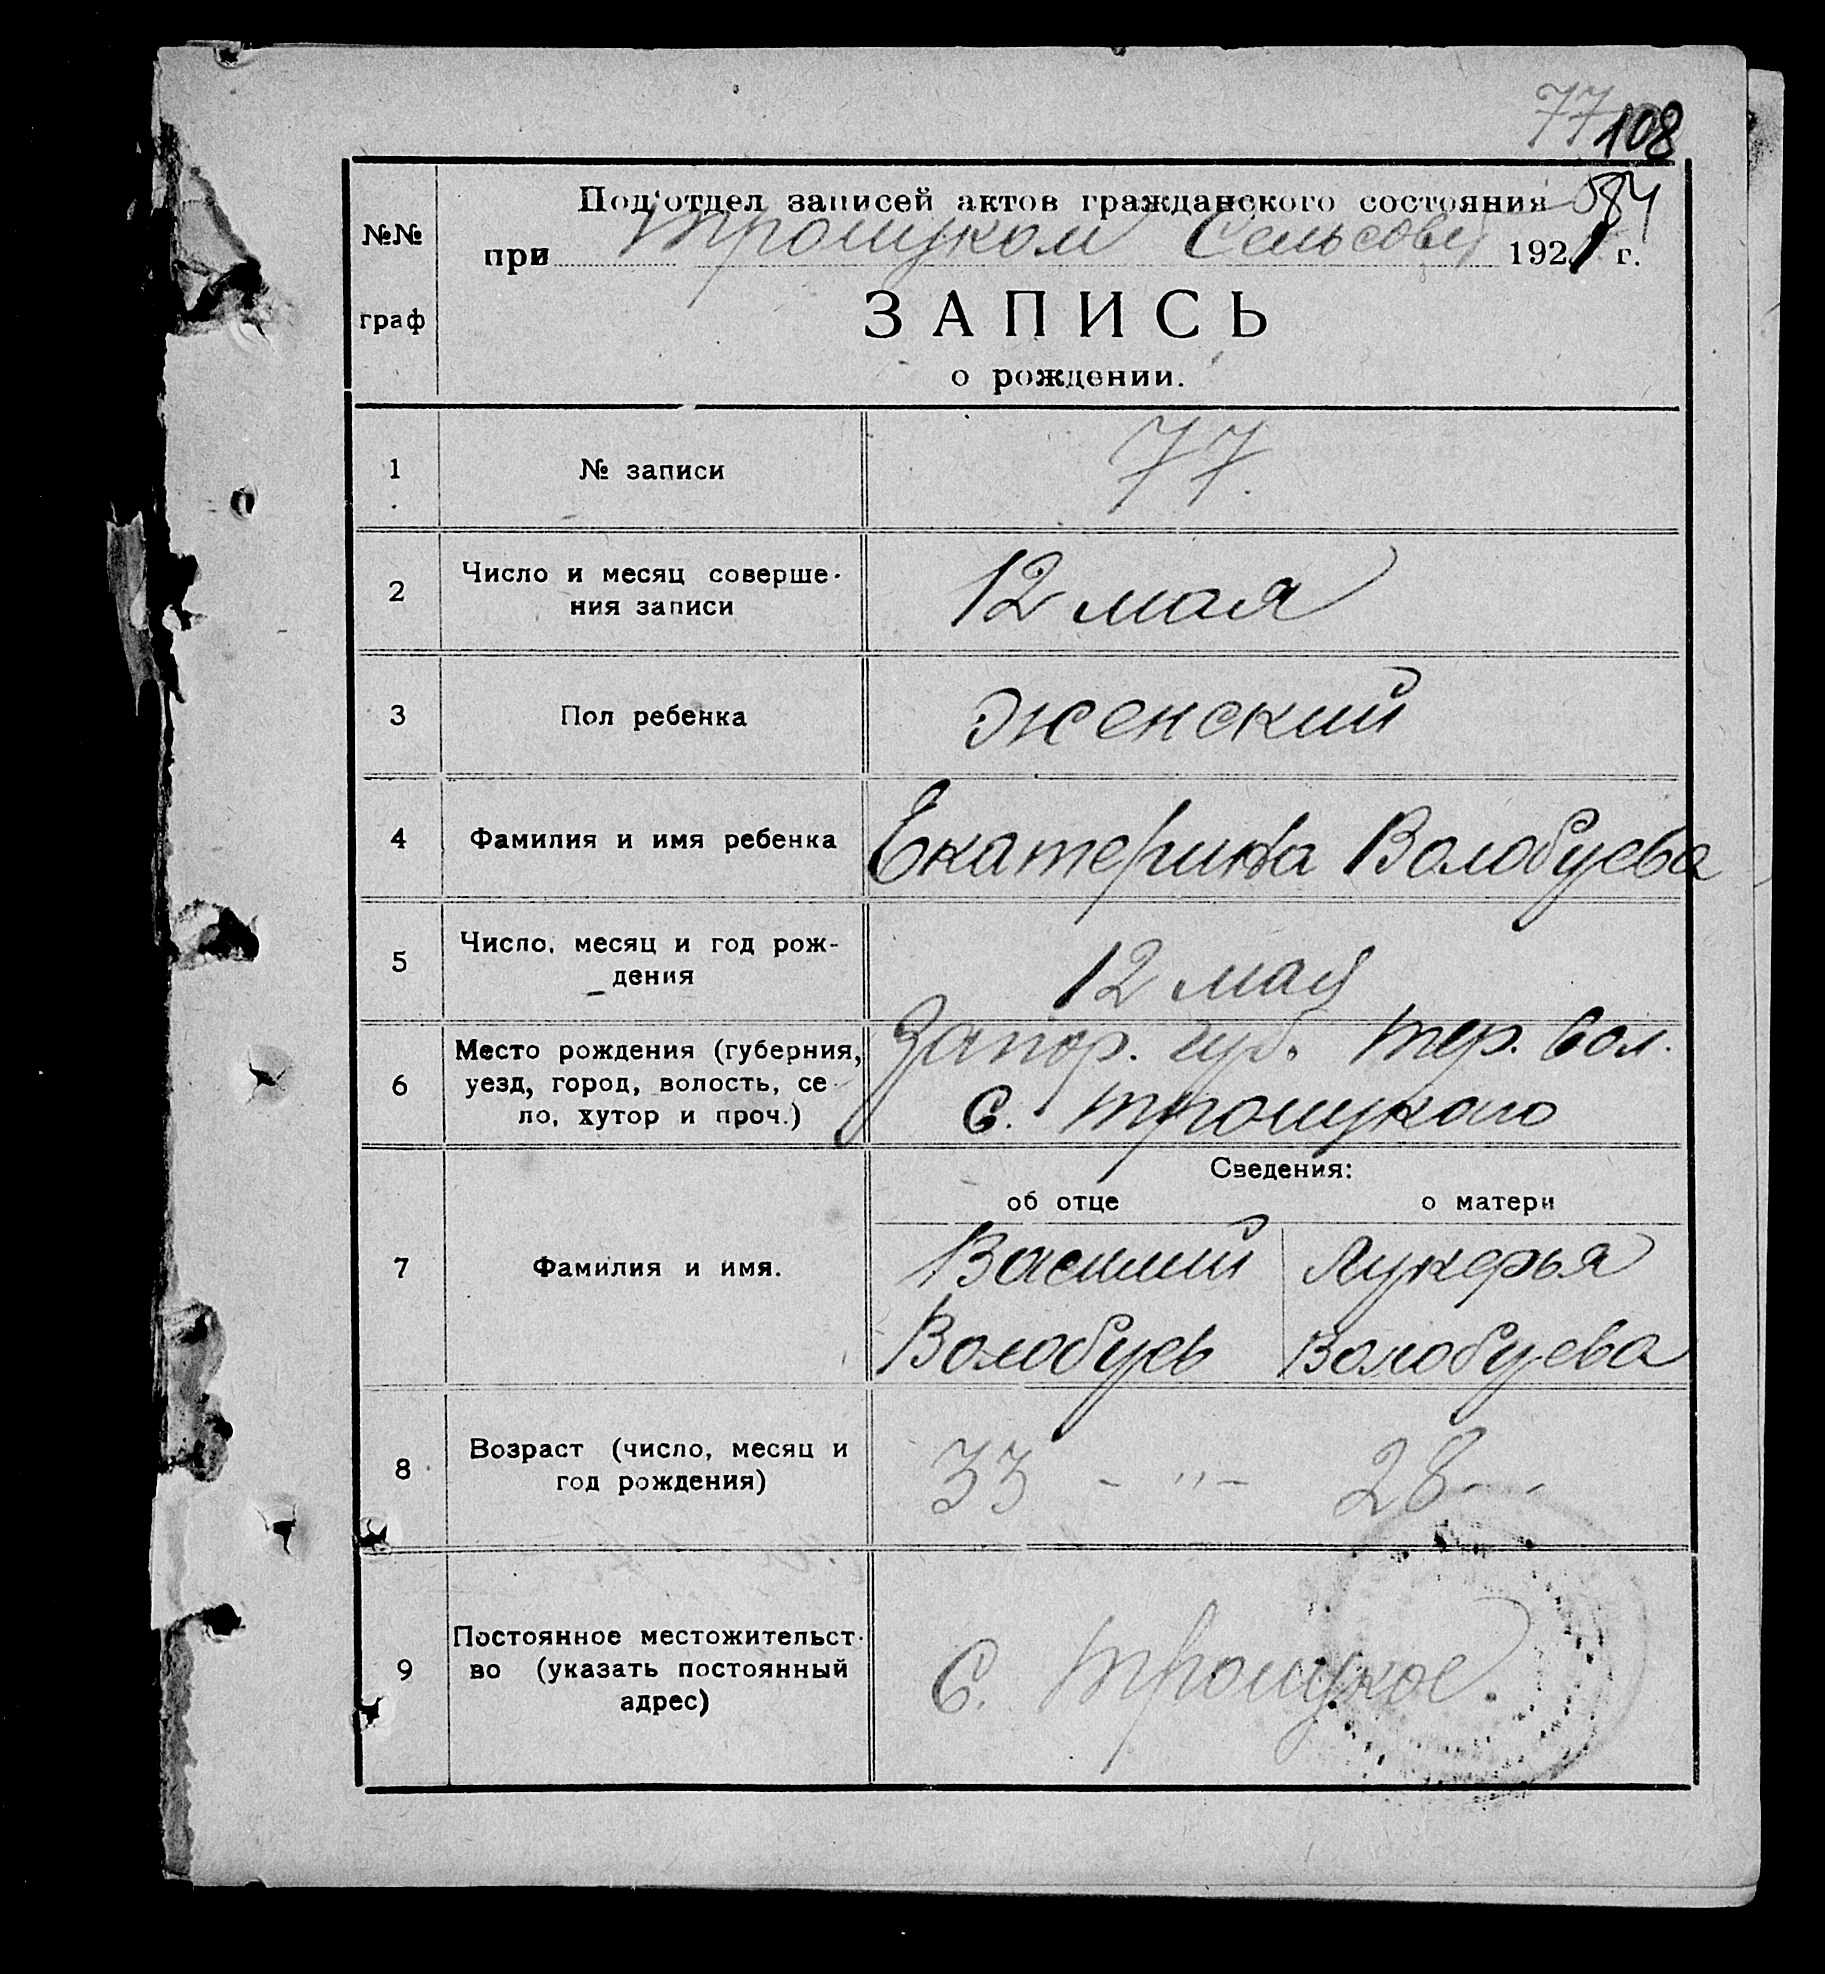 77 108
Под'отдел записей актов гражданского состояния 84
№№
при Троицком Сельсовет 1921 г.
граф
ЗАПИСЬ
о рождении.
1 № записи 77.
2 Число и месяц соверше-
ния записи 12 мая
3 Пол ребенка женский
4 Фамилия и имя ребенка Екатерина Волобуева
5 Число, месяц и год рож-
дения 12 мая
6 Место рождения (губерния, Запор. губ. Тер. вол.
уезд, город, волость, се-
ло, хутор и проч.) с. Троицкого
Сведения:
об отце о матери
7 Фамилия и имя. Василий Лукерья
Волобуев Волобуева
8 Возраст (число, месяц и
год рождения) 33 - " - 28 - -
9 Постоянное местожительст-
во (указать постоянный
адрес) с. Троицкое.